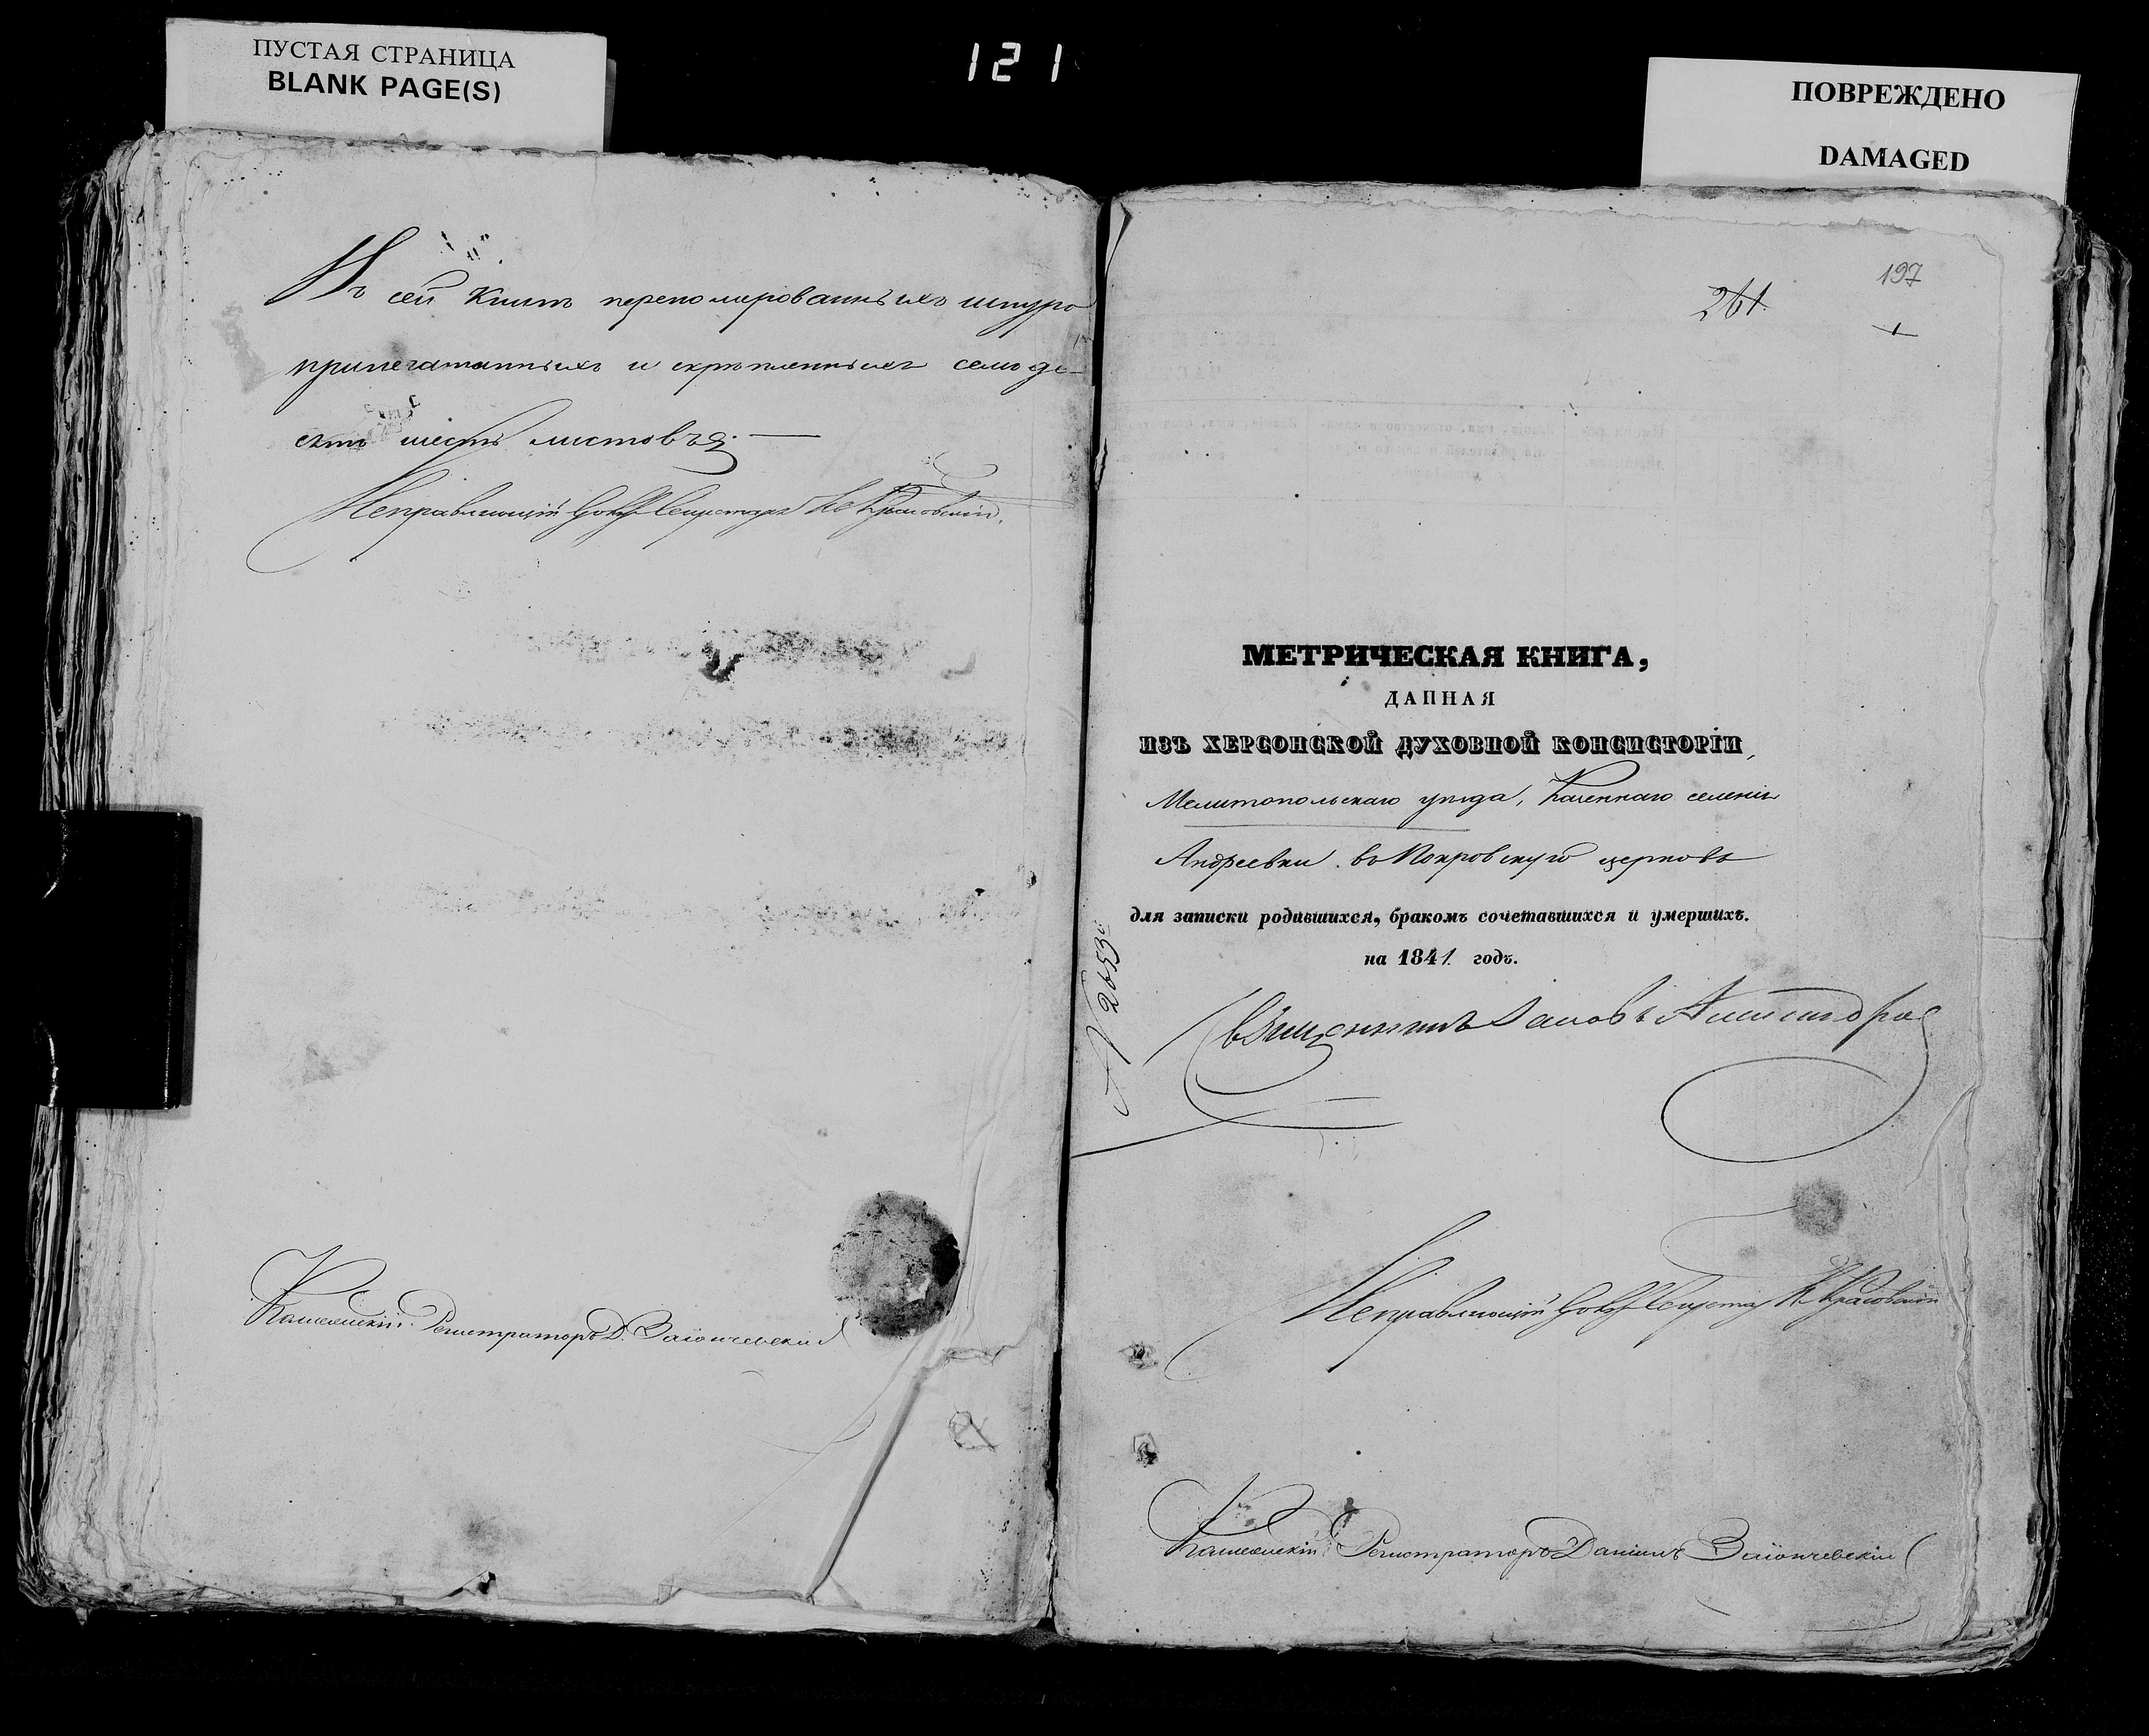 ПУСТАЯ СТРАНИЦА
BLANK PAGE(S)
121
ПОВРЕЖДЕНО
DAMAGED
Въ сей Книгѣ перенумерованныхъ шнуро
припечатанныхъ и скрѣпленныхъ семьде-
сятъ шесть листовъ.
Исправляющій Секретаря
Канцелярскій Регистраторъ Д. Заіончевскій
197
261
1
МЕТРИЧЕСКАЯ КНИГА,
ДАННАЯ
ИЗЪ ХЕРСОНСКОЙ ДУХОВНОЙ КОНСИСТОРІИ,
Мелитопольскаго уѣзда, Казеннаго селенія
Андреевки въ Покровскую церковь
для записки родившихся, бракомъ сочетавшихся и умершихъ.
на 1841 годъ.
№ 2653
Священникъ
Исправляющій
Регистраторъ Даніилъ Заіончевскій